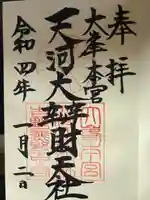 奉拝
大峯本宮
天河大辨財天社
令和四年一月二日